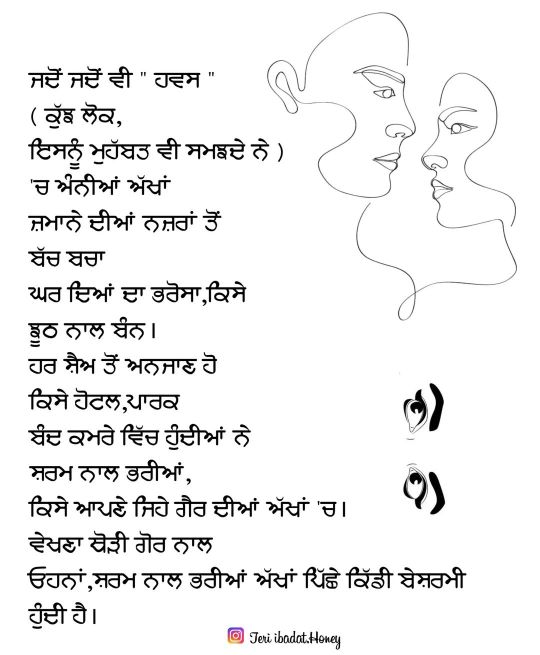 ਜਦੋਂ ਜਦੋਂ ਵੀ " ਹਵਸ "
( ਕੁੱਝ ਲੋਕ,
ਇਸਨੂੰ ਮੁਹੱਬਤ ਵੀ ਸਮਝਦੇ ਨੇ )
'ਚ ਅੰਨੀਆਂ ਅੱਖਾਂ
ਜ਼ਮਾਨੇ ਦੀਆਂ ਨਜ਼ਰਾਂ ਤੋਂ
ਬੱਚ ਬਚਾ
ਘਰ ਦਿਆਂ ਦਾ ਭਰੋਸਾ,ਕਿਸੇ
ਝੂਠ ਨਾਲ ਬੰਨ।
ਹਰ ਸ਼ੈਅ ਤੋਂ ਅਨਜਾਣ ਹੋ
ਕਿਸੇ ਹੋਟਲ,ਪਾਰਕ
ਬੰਦ ਕਮਰੇ ਵਿੱਚ ਹੁੰਦੀਆਂ ਨੇ
ਸ਼ਰਮ ਨਾਲ ਭਰੀਆਂ,
ਕਿਸੇ ਆਪਣੇ ਜਿਹੇ ਗੈਰ ਦੀਆਂ ਅੱਖਾਂ 'ਚ।
ਵੇਖਣਾ ਥੋੜੀ ਗੋਰ ਨਾਲ
ਓਹਨਾਂ,ਸ਼ਰਮ ਨਾਲ ਭਰੀਆਂ ਅੱਖਾਂ ਪਿੱਛੇ ਕਿੱਡੀ ਬੇਸ਼ਰਮੀ
ਹੁੰਦੀ ਹੈ।
Teri ibadat.Honey